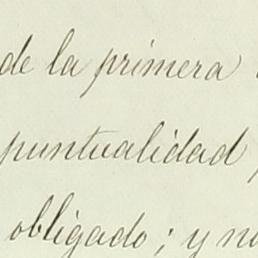 de la primera
puntualidad
obligado; y no